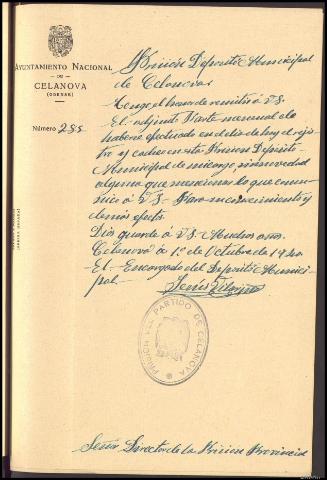 AYUNTAMIENTO NACIONAL
DE
CELANOVA
(ORENSE)
Número 285
Prision Deposito Municipal
de Celanova.
Tengo el honor de remitir á VS.
El adjunto Parte mensual de
haberse efectuado en el dia de hoy el
y en esta Prision Deposito
Municipal de mi cargo, sin novedad
alguna que mencionar lo que comu-
nico á VS. Para su conocimiento y
demás efectos.
Dios guarde á VS. Muchos años.
Celanova á 1º de Octubre de 1940.
El Encargado del Deposito Munici-
pal.
PRISION DEL PARTIDO DE CELANOVA
Señor Director de la Prision Provincial